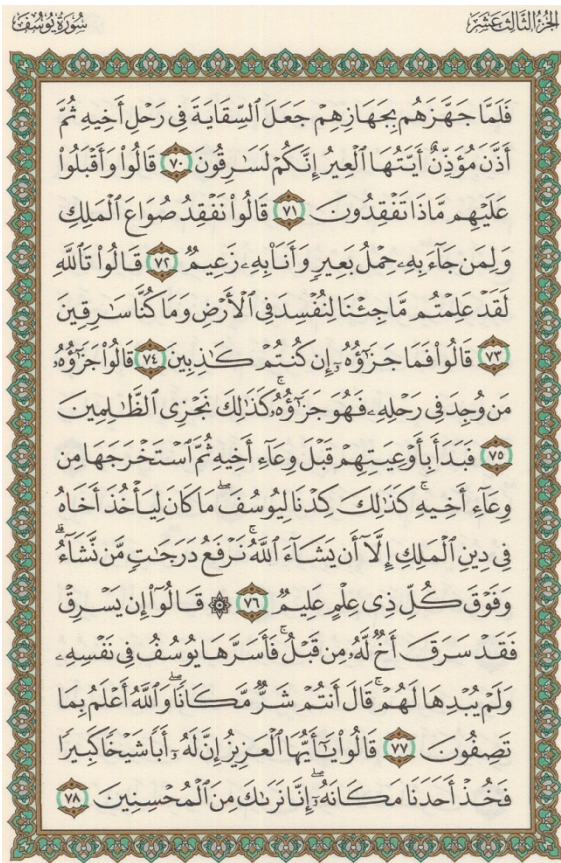 الجزء الثالث عشر
سورة يوسف
فَلَمَّا جَهَّزَهُم بِجَهَازِهِمْ جَعَلَ ٱلسِّقَايَةَ فِى رَحْلِ أَخِيهِ ثُمَّ
أَذَّنَ مُؤَذِّنٌ أَيَّتُهَا ٱلْعِيرُ إِنَّكُمْ لَسَٰرِقُونَ ٧٠ قَالُوا۟ وَأَقْبَلُوا۟
عَلَيْهِم مَّاذَا تَفْقِدُونَ ٧١ قَالُوا۟ نَفْقِدُ صُوَاعَ ٱلْمَلِكِ
وَلِمَن جَآءَ بِهِۦ حِمْلُ بَعِيرٍ وَأَنَا۠ بِهِۦ زَعِيمٌ ٧٢ قَالُوا۟ تَٱللَّهِ
لَقَدْ عَلِمْتُم مَّا جِئْنَا لِنُفْسِدَ فِى ٱلْأَرْضِ وَمَا كُنَّا سَٰرِقِينَ
٧٣ قَالُوا۟ فَمَا جَزَٰٓؤُهُۥٓ إِن كُنتُمْ كَٰذِبِينَ ٧٤ قَالُوا۟ جَزَٰٓؤُهُۥ
مَن وُجِدَ فِى رَحْلِهِۦ فَهُوَ جَزَٰٓؤُهُۥۚ كَذَٰلِكَ نَجْزِى ٱلظَّٰلِمِينَ
٧٥ فَبَدَأَ بِأَوْعِيَتِهِمْ قَبْلَ وِعَآءِ أَخِيهِ ثُمَّ ٱسْتَخْرَجَهَا مِن
وِعَآءِ أَخِيهِۚ كَذَٰلِكَ كِدْنَا لِيُوسُفَۖ مَا كَانَ لِيَأْخُذَ أَخَاهُ
فِى دِينِ ٱلْمَلِكِ إِلَّآ أَن يَشَآءَ ٱللَّهُۚ نَرْفَعُ دَرَجَٰتٍ مَّن نَّشَآءُۗ
وَفَوْقَ كُلِّ ذِى عِلْمٍ عَلِيمٌ ٧٦ ۞ قَالُوٓا۟ إِن يَسْرِقْ
فَقَدْ سَرَقَ أَخٌ لَّهُۥ مِن قَبْلُۚ فَأَسَرَّهَا يُوسُفُ فِى نَفْسِهِۦ
وَلَمْ يُبْدِهَا لَهُمْۚ قَالَ أَنتُمْ شَرٌّ مَّكَانًاۖ وَٱللَّهُ أَعْلَمُ بِمَا
تَصِفُونَ ٧٧ قَالُوا۟ يَٰٓأَيُّهَا ٱلْعَزِيزُ إِنَّ لَهُۥٓ أَبًا شَيْخًا كَبِيرًا
فَخُذْ أَحَدَنَا مَكَانَهُۥٓۖ إِنَّا نَرَىٰكَ مِنَ ٱلْمُحْسِنِينَ ٧٨